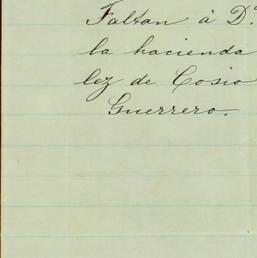 Faltan á D.ª
la hacienda
lez de Cosio
Guerrero.